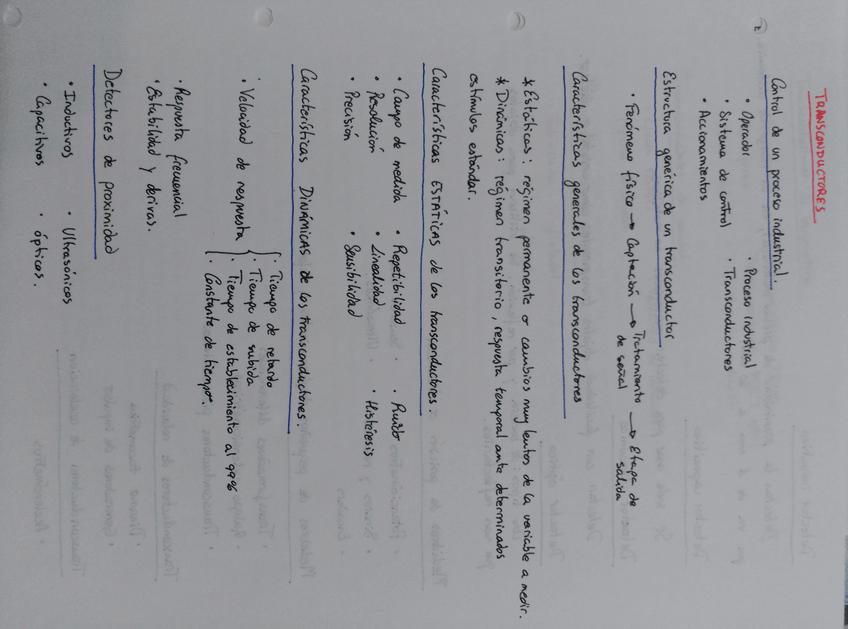 TRANSCONDUCTORES
Control de un proceso industrial.
• Operador • Proceso industrial
• Sistema de control • Transconductores
• Accionamientos
Estructura genérica de un transconductor
• Fenómeno físico → Captación → Tratamiento de señal → Etapa de salida
Características generales de los transconductores
* Estáticas: régimen permanente o cambios muy lentos de la variable a medir.
* Dinámicas: régimen transitorio, respuesta temporal ante determinados
estímulos estándar.
Características ESTÁTICAS de los transconductores.
• Campo de medida • Repetibilidad • Ruido
• Resolución • Linealidad • Histéresis
• Precisión • Sensibilidad
Características DINÁMICAS de los transconductores.
• Velocidad de respuesta { • Tiempo de retardo
• Tiempo de subida
• Tiempo de establecimiento al 99%
• Constante de tiempo.
• Respuesta frecuencial
• Estabilidad y derivas.
Detectores de proximidad
• Inductivos • Ultrasónicos
• Capacitivos • ópticos.